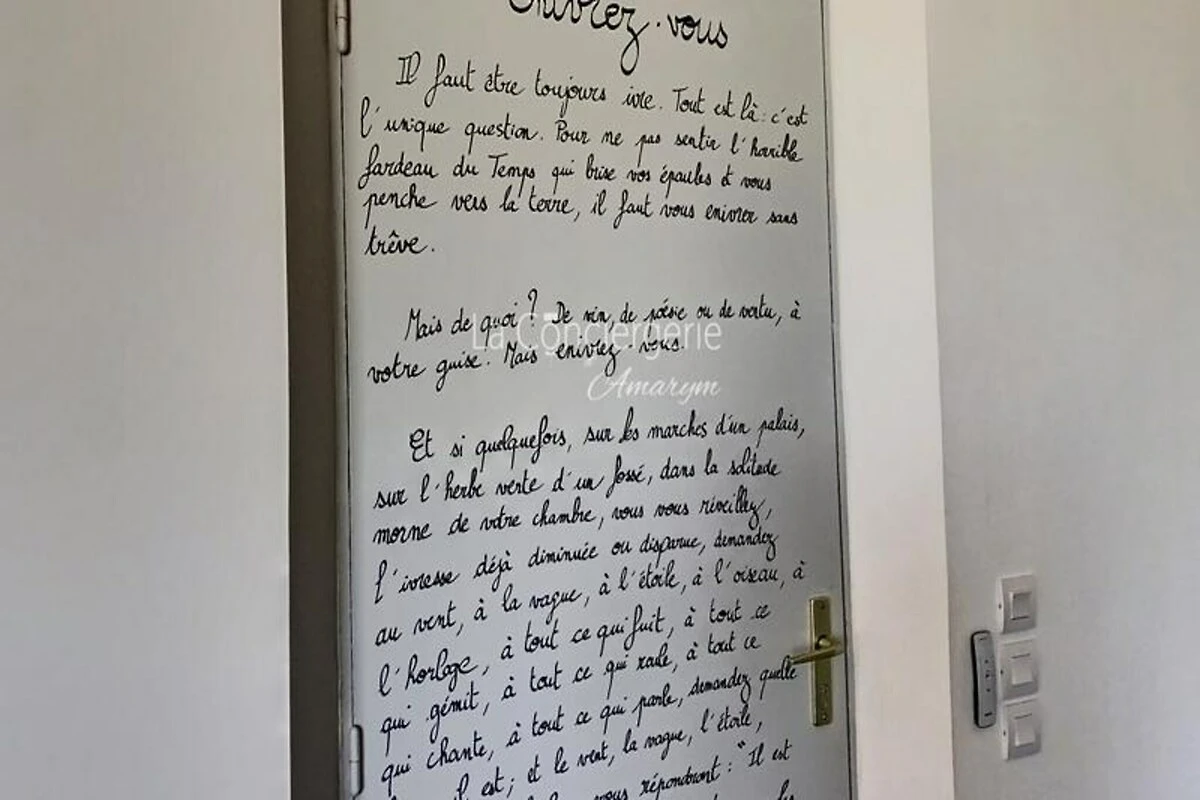 Enivrez-vous
Il faut être toujours ivre. Tout est là : c'est
l'unique question. Pour ne pas sentir l'horrible
fardeau du Temps qui brise vos épaules et vous
penche vers la terre, il faut vous enivrer sans
trêve.
Mais de quoi ? De vin, de poésie ou de vertu, à
votre guise. Mais enivrez-vous.
La Conciergerie
Amarym
Et si quelquefois, sur les marches d'un palais,
sur l'herbe verte d'un fossé, dans la solitude
morne de votre chambre, vous vous réveillez,
l'ivresse déjà diminuée ou disparue, demandez
au vent, à la vague, à l'étoile, à l'oiseau, à
l'horloge, à tout ce qui fuit, à tout ce
qui gémit, à tout ce qui roule, à tout ce
qui chante, à tout ce qui parle, demandez quelle
il est ; et le vent, la vague, l'étoile,
vous répondront : "Il est